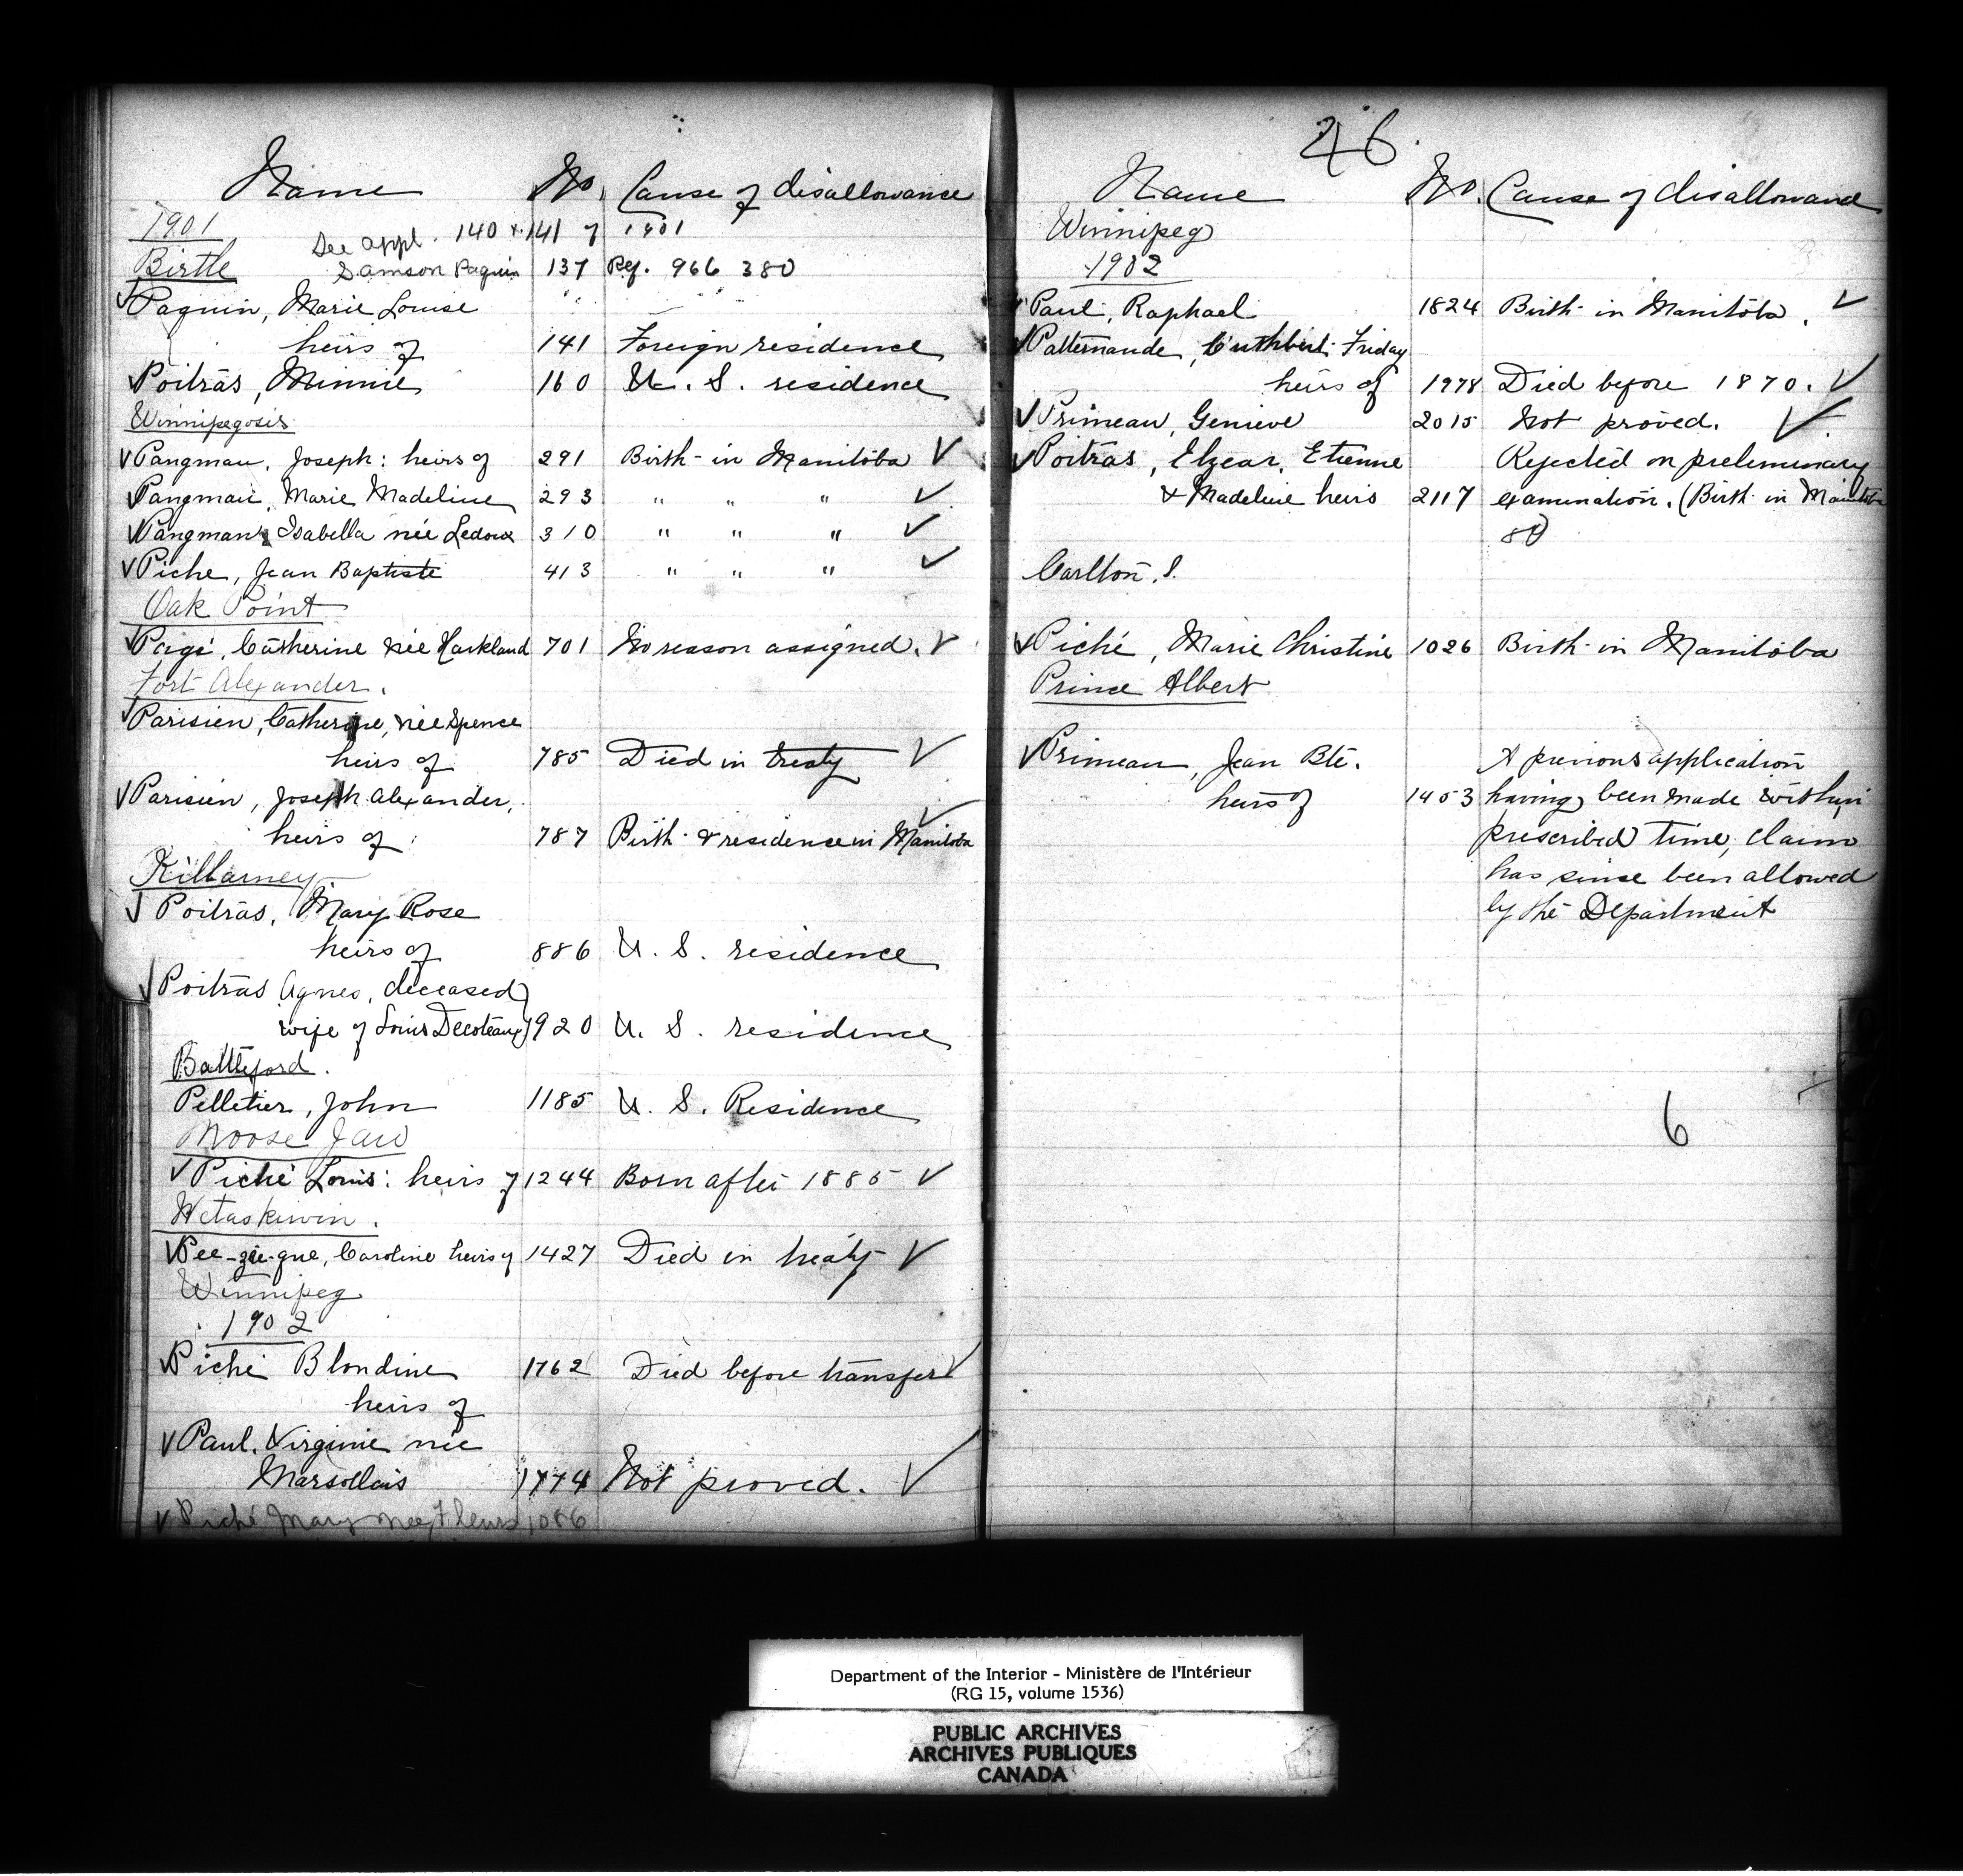 Name No. Cause of disallowance
1901 See appl. 140 & 141 of 1901
Birtle Samson Paquin 137 Ref. 966 380
✓ Paquin, Marie Louise
heirs of 141 Foreign residence
✓ Poitras, Minnie 160 U. S. residence
Winnipegosis
✓ Pangman, Joseph: heirs of 291 Birth in Manitoba ✓
Pangman, Marie Madeline 293 " " " ✓
✓ Pangman, Isabella née Ledoux 310 " " " ✓
✓ Piche, Jean Baptiste 413 " " " ✓
Oak Point
✓ Pagé, Catherine née Harkland 701 No reason assigned. ✓
Fort Alexander.
✓ Parisien, Catherine, née Spence
heirs of 785 Died in treaty ✓
✓ Parisien, Joseph Alexander,
heirs of: 787 Birth & residence in Manitoba ✓
Killarney
✓ Poitras, Mary Rose
heirs of 886 U. S. residence
✓ Poitras Agnes, deceased)
wife of Louis Decoteau) 920 U. S. residence
Battleford.
Pelletier, John 1185 U. S. Residence
Moose Jaw
✓ Piché Louis: heirs of 1244 Born after 1885 ✓
Wetaskiwin.
✓ Pee-zee-que, Caroline heirs of 1427 Died in treaty ✓
Winnipeg
1902
✓ Piché Blondine 1762 Died before transfer ✓
heirs of
✓ Paul, Virginie née
Marsollais 1774 Not proved. ✓
✓ Piché Mary heirs 1086
26.
Name No. Cause of disallowance
Winnipeg
1902
✓ Paul, Raphael 1824 Birth in Manitoba. ✓
✓ Patternaude, Cuthbert Friday
heirs of 1978 Died before 1870. ✓
✓ Primeau, Genieve 2015 Not proved. ✓
✓ Poitras, Elzear, Etienne Rejected on preliminary
& Madeline heirs 2117 examination. (Birth in Manitoba
Carlton, S.
✓ Piché, Marie Christine 1026 Birth in Manitoba
Prince Albert
✓ Primeau, Jean Bte. A previous application
heirs of 1453 having been made within
prescribed time, claim
has since been allowed
by the Department
6
Department of the Interior - Ministère de l'Intérieur
(RG 15, volume 1536)
PUBLIC ARCHIVES
ARCHIVES PUBLIQUES
CANADA